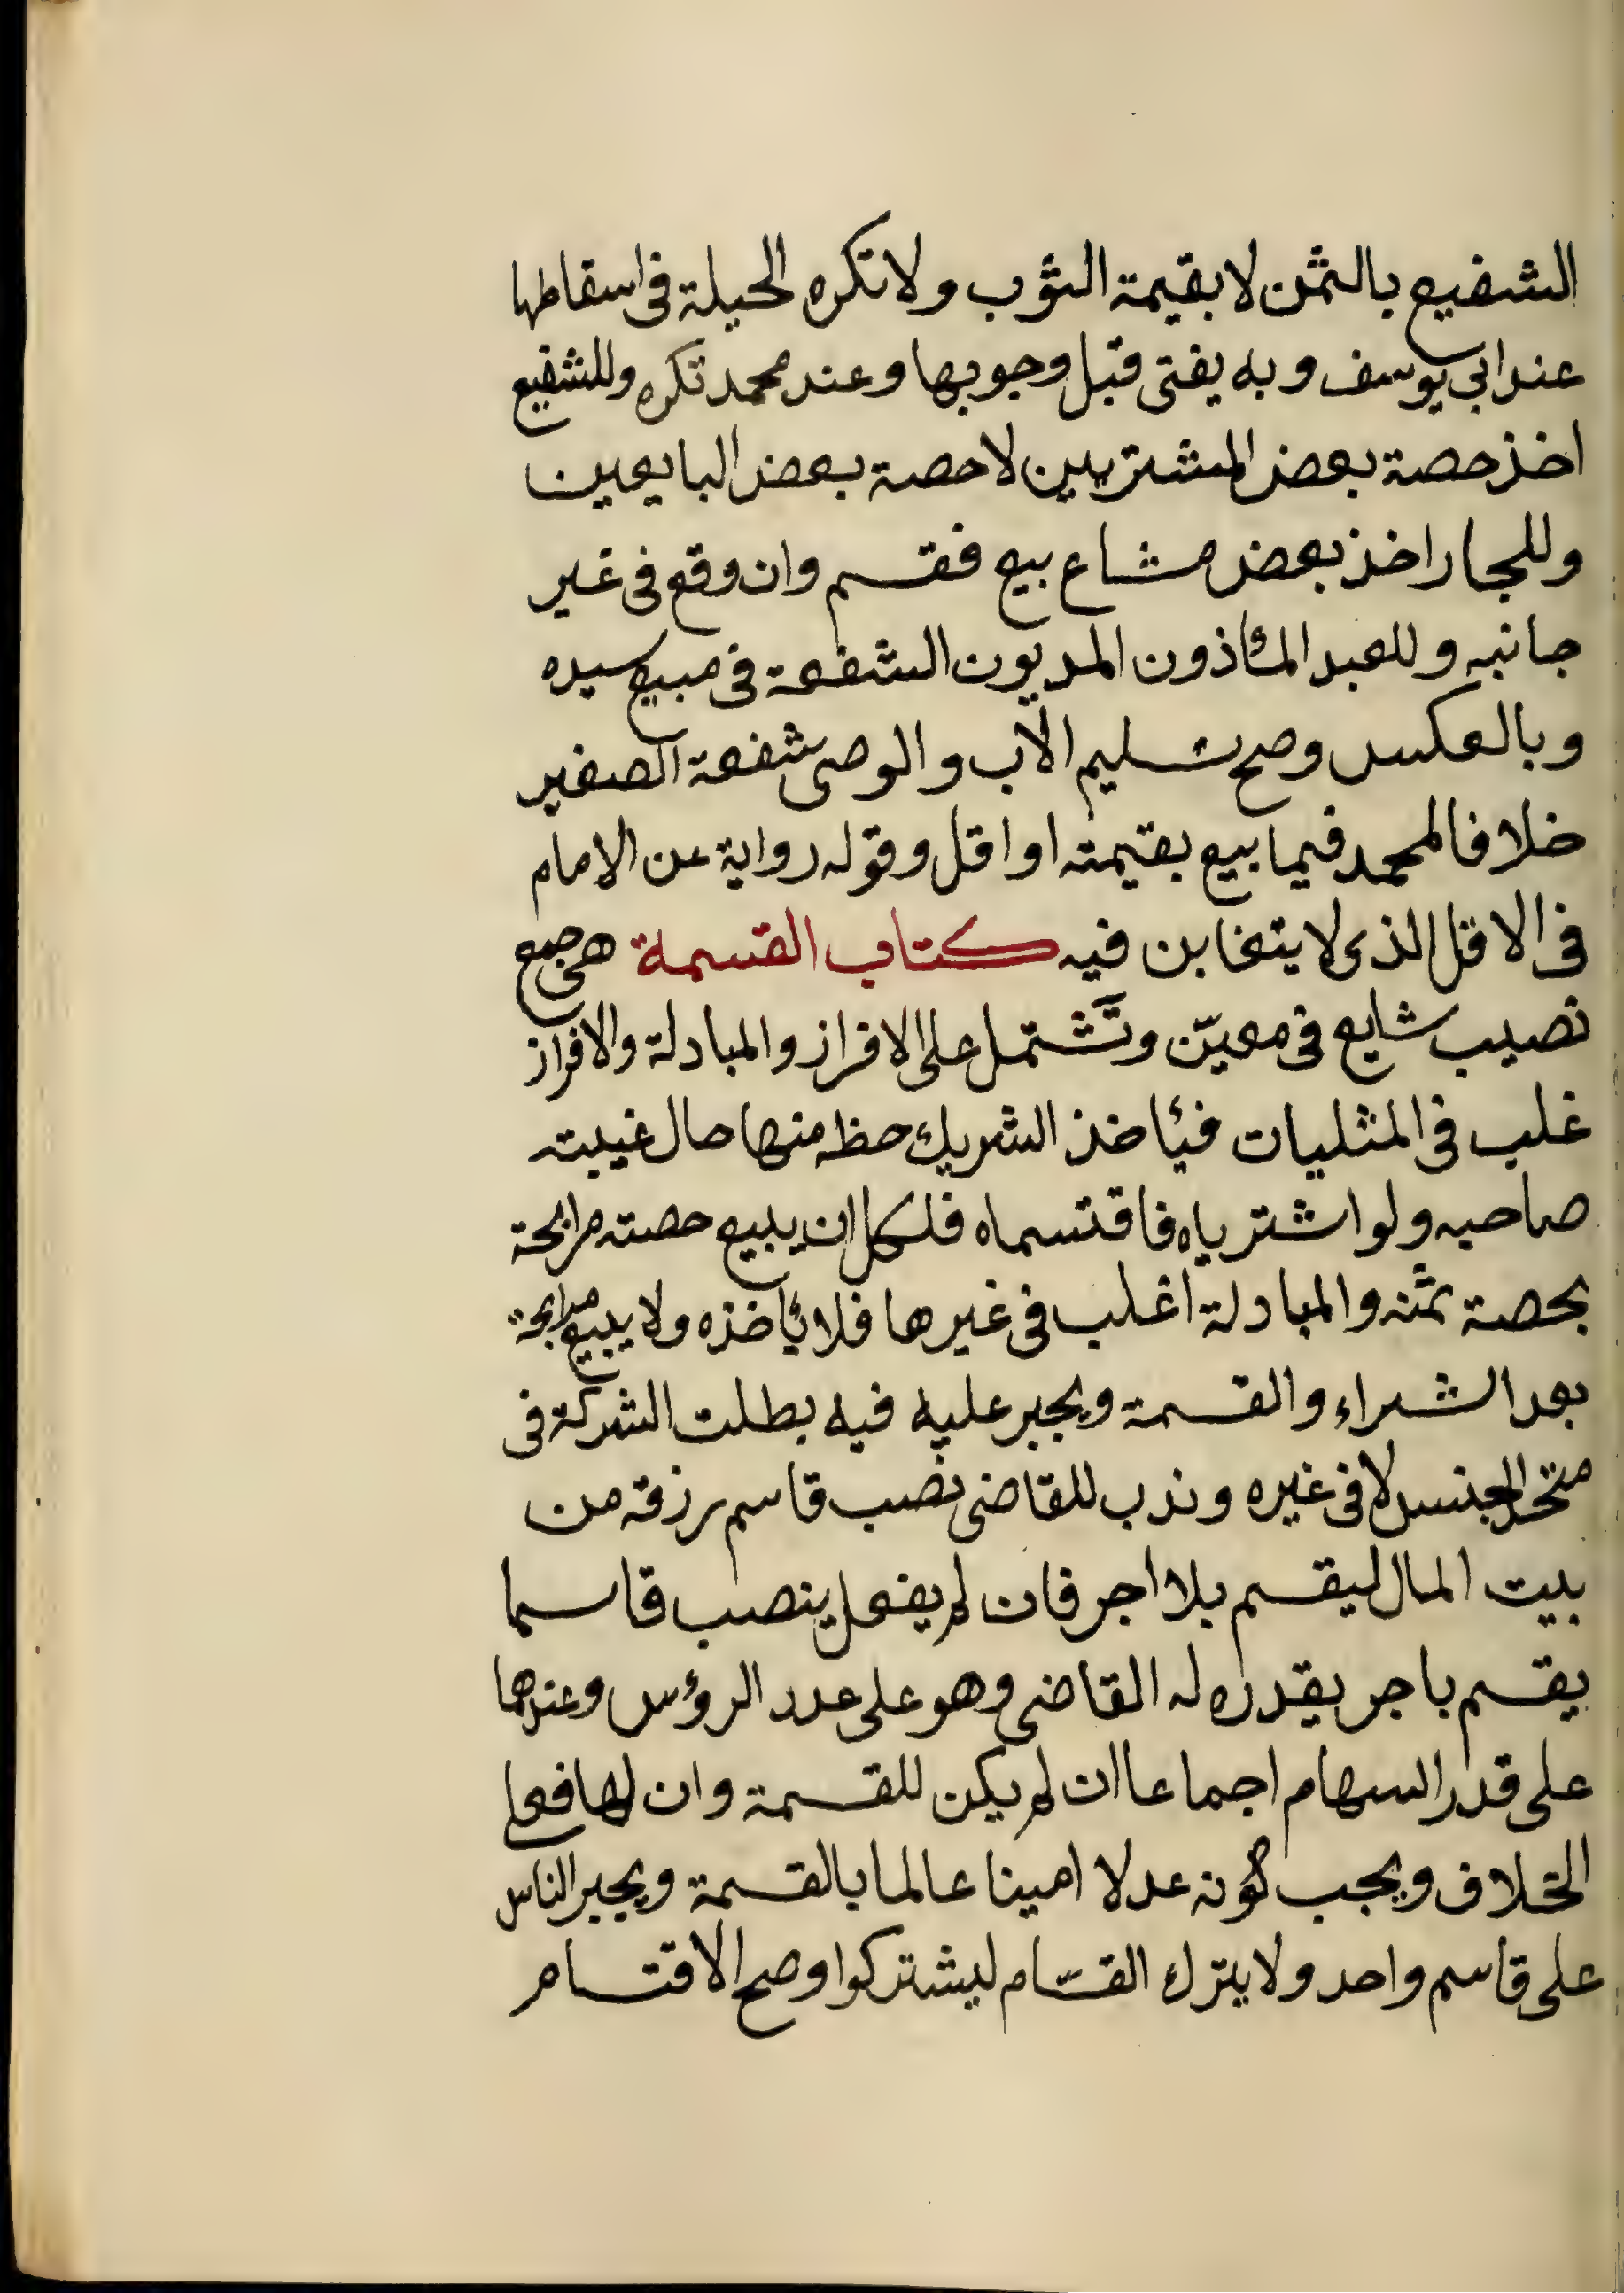 الشفيع بالثمن لا بقيمة الثوب ولا تكره الحيلة فى اسقاطها
عند ابي يوسف وبه يفتى قبل وجوبها وعند محمد تكره وللشفيع
اخذ حصة بعض المشتريين لا حصة بعض البايعين
وللجار اخذ بعض مشاع بيع فقسم وان وقع فى غير
جانبه وللعبد المأذون المديون الشفعة فى مبيع سيده
وبالعكس وصح تسليم الاب والوصى شفعة الصغير
خلافا لمحمد فيما بيع بقيمته او اقل وقوله رواية عن الامام
فى الاقل الذى لا يتغابن فيه كتاب القسمة هى جمع
نصيب شايع فى معيّن وتشتمل على الافراز والمبادلة والافراز
غلب فى المثليات فيأخذ الشريك حظه منها حال غيبته
صاحبه ولو اشترياه فاقتسماه فلكل ان يبيع حصته مرابحة
بحصة ثمنه والمبادلة اغلب فى غيرها فلا يأخذه ولا يبيع مرابحة
بعد الشراء والقسمة ويجبر عليه فيه بطلت الشركة فى
متحد الجنس لا فى غيره وندب للقاضى نصب قاسم رزقه من
بيت المال ليقسم بلا اجر فان لم يفعل ينصب قاسما
يقسم باجر يقدره له القاضى وهو على عدد الرؤس وعندهما
على قدر السهام اجماعا ان لم يكن للقسمة وان لها فعلى
الخلاف ويجب كونه عدلا امينا عالما بالقسمة ويجبر الناس
على قاسم واحد ولا يترك القسّام ليشتركوا وصح الاقتسام